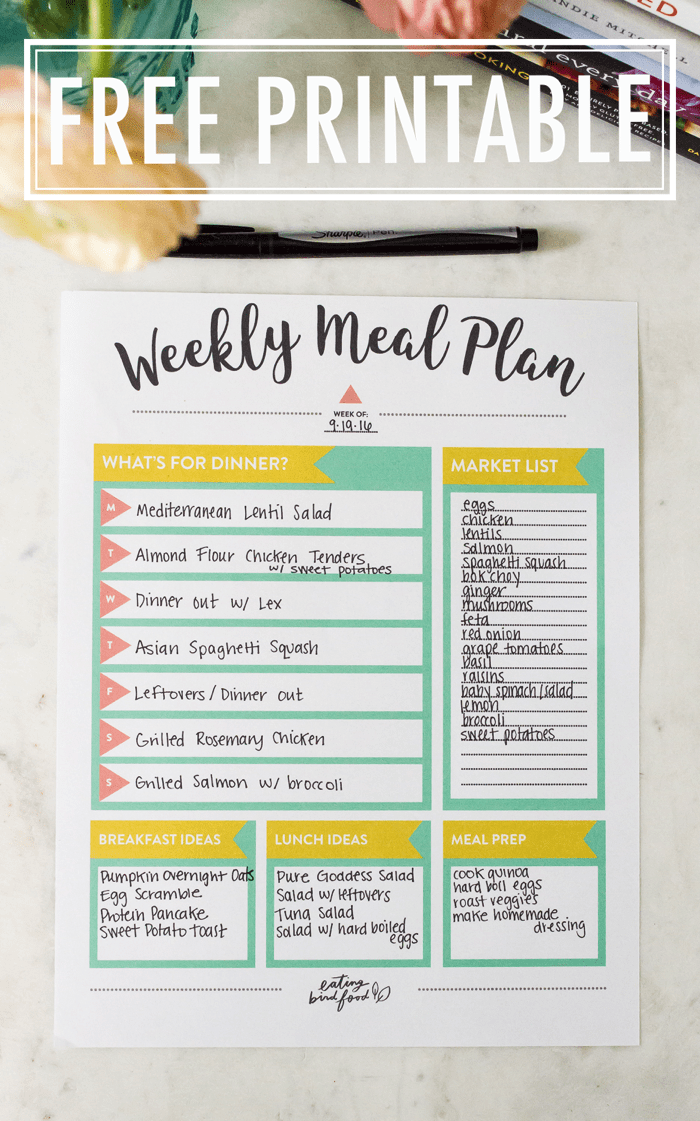 RED
ANDIE MITCHELL
FREE PRINTABLE
Sharpie. Pen
Weekly Meal Plan
WEEK OF:
9.19.16
WHAT'S FOR DINNER?
M Mediterranean Lentil Salad
T Almond Flour Chicken Tenders
w/ sweet potatoes
W Dinner out w/ Lex
T Asian Spaghetti Squash
F Leftovers / Dinner out
S Grilled Rosemary Chicken
S Grilled Salmon w/ broccoli
MARKET LIST
eggs
chicken
lentils
salmon
spaghetti squash
bok choy
ginger
mushrooms
feta
red onion
grape tomatoes
basil
raisins
baby spinach/salad
lemon
broccoli
sweet potatoes
BREAKFAST IDEAS
Pumpkin Overnight Oats
Egg Scramble
Protein Pancake
Sweet Potato Toast
LUNCH IDEAS
Pure Goddess Salad
Salad w/ leftovers
Tuna Salad
Salad w/ hard boiled
eggs
MEAL PREP
cook quinoa
hard boil eggs
roast veggies
make homemade
dressing
eating
bird food